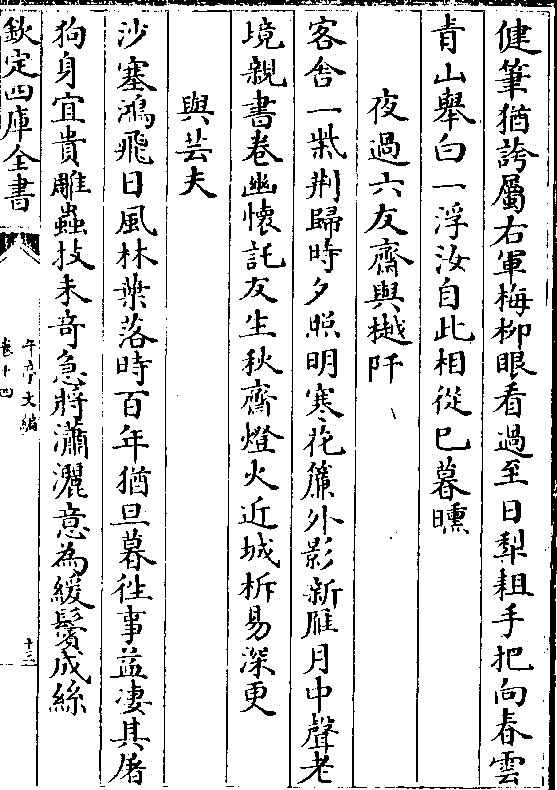 健筆猶誇屬右軍梅柳眼看過至日犁耝手把向春雲
青山舉白一浮汝自此相從巳暮曛
夜過六友齋與樾阡
客舍一柴荆歸時夕照明寒花簾外影新雁月中聲老
境親書卷幽懷託友生秋齋燈火近城柝易深更
與芸夫
沙塞鴻飛日風林葉落時百年猶旦暮徃事益凄其屠
狗身宜貴雕蟲技未竒急將瀟灑意為緩鬢成絲
欽定四庫全書
午亭文編
卷十四
十三